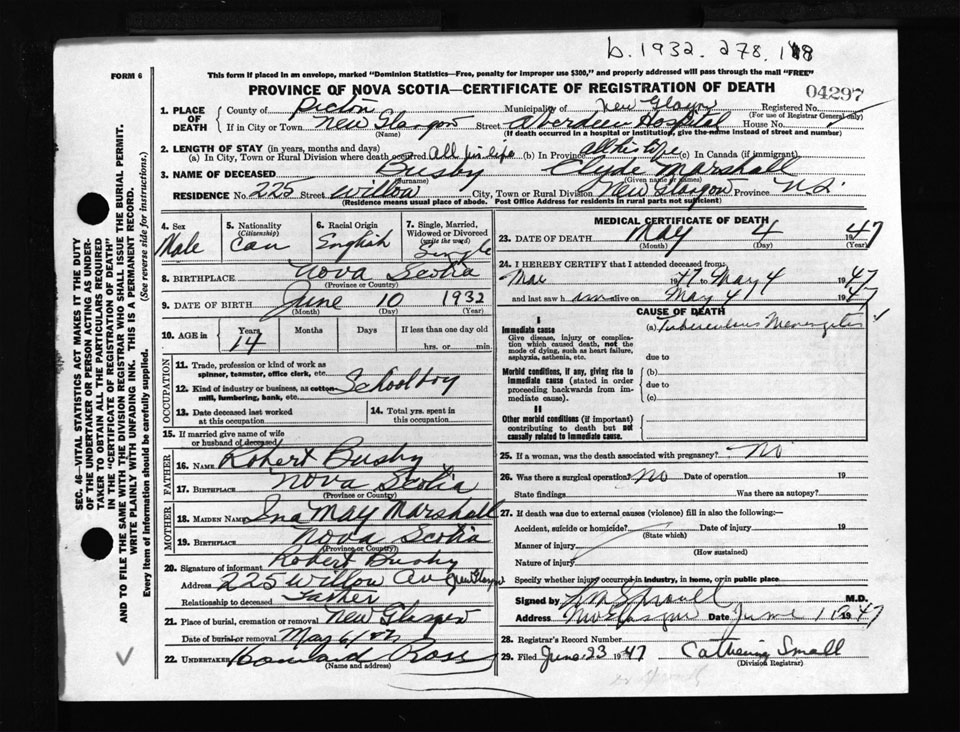 b. 1932. 278. 118
FORM 6
This form if placed in an envelope, marked "Dominion Statistics—Free, penalty for improper use $300," and properly addressed will pass through the mail "FREE"
PROVINCE OF NOVA SCOTIA—CERTIFICATE OF REGISTRATION OF DEATH
04297
1. PLACE OF DEATH
County of Pictou Municipality of New Glasgow Registered No.
(For use of Registrar General only)
If in City or Town New Glasgow Street Aberdeen Hospital House No.
(Name) (If death occurred in a hospital or institution, give the name instead of street and number)
2. LENGTH OF STAY (in years, months and days)
(a) In City, Town or Rural Division where death occurred All his life (b) In Province all his life (c) In Canada (if immigrant)
3. NAME OF DECEASED Busby Clyde Marshall
(Given name or names)
RESIDENCE No. 225 Street Willow City, Town or Rural Division New Glasgow Province N.S.
(Residence means usual place of abode. Post Office Address for residents in rural parts not sufficient)
4. Sex Male
5. Nationality (Citizenship) Can
6. Racial Origin English
7. Single, Married, Widowed or Divorced (write the word) Single
8. BIRTHPLACE Nova Scotia
(Province or Country)
9. DATE OF BIRTH June 10 1932
(Month) (Day) (Year)
10. AGE in Years 14 Months Days If less than one day old
hrs. or min.
OCCUPATION
11. Trade, profession or kind of work as spinner, teamster, office clerk, etc.
12. Kind of industry or business, as cotton-mill, lumbering, bank, etc. Schoolboy
13. Date deceased last worked at this occupation
14. Total yrs. spent in this occupation
15. If married give name of wife or husband of deceased
FATHER
16. NAME Robert Busby
17. BIRTHPLACE Nova Scotia
(Province or Country)
MOTHER
18. MAIDEN NAME Ina May Marshall
19. BIRTHPLACE Nova Scotia
(Province or Country)
20. Signature of informant Robert Busby
Address 225 Willow Av New Glasgow
Relationship to deceased Father
21. Place of burial, cremation or removal New Glasgow
Date of burial or removal May 6/47
22. UNDERTAKER Howard Ross
(Name and address)
MEDICAL CERTIFICATE OF DEATH
23. DATE OF DEATH May 4 1947
(Month) (Day) (Year)
24. I HEREBY CERTIFY that I attended deceased from:
Mar 47 to May 4 1947
and last saw h im alive on May 4 1947
CAUSE OF DEATH
I
Immediate cause
Give disease, injury or complication which caused death, not the mode of dying, such as heart failure, asphyxia, asthenia, etc.
(a) Tuberculous Meningitis
due to
Morbid conditions, if any, giving rise to immediate cause (stated in order proceeding backwards from immediate cause).
(b)
due to
(c)
II
Other morbid conditions (if important) contributing to death but not causally related to immediate cause.
25. If a woman, was the death associated with pregnancy? No
26. Was there a surgical operation? No Date of operation 19
State findings Was there an autopsy?
27. If death was due to external causes (violence) fill in also the following:—
Accident, suicide or homicide? Date of injury 19
(State which)
Manner of injury
(How sustained)
Nature of injury
Specify whether injury occurred in industry, in home, or in public place
Signed by M.D.
Address New Glasgow Date June 1 1947
28. Registrar's Record Number
29. Filed June 23 1947 Catherine Small
(Division Registrar)
SEC. 46—VITAL STATISTICS ACT MAKES IT THE DUTY
OF THE UNDERTAKER OR PERSON ACTING AS UNDER-
TAKER TO OBTAIN ALL THE PARTICULARS REQUIRED
IN THE "CERTIFICATE OF REGISTRATION OF DEATH"
AND TO FILE THE SAME WITH THE DIVISION REGISTRAR WHO SHALL ISSUE THE BURIAL PERMIT.
WRITE PLAINLY WITH UNFADING INK. THIS IS A PERMANENT RECORD.
Every item of Information should be carefully supplied. (See reverse side for instructions.)